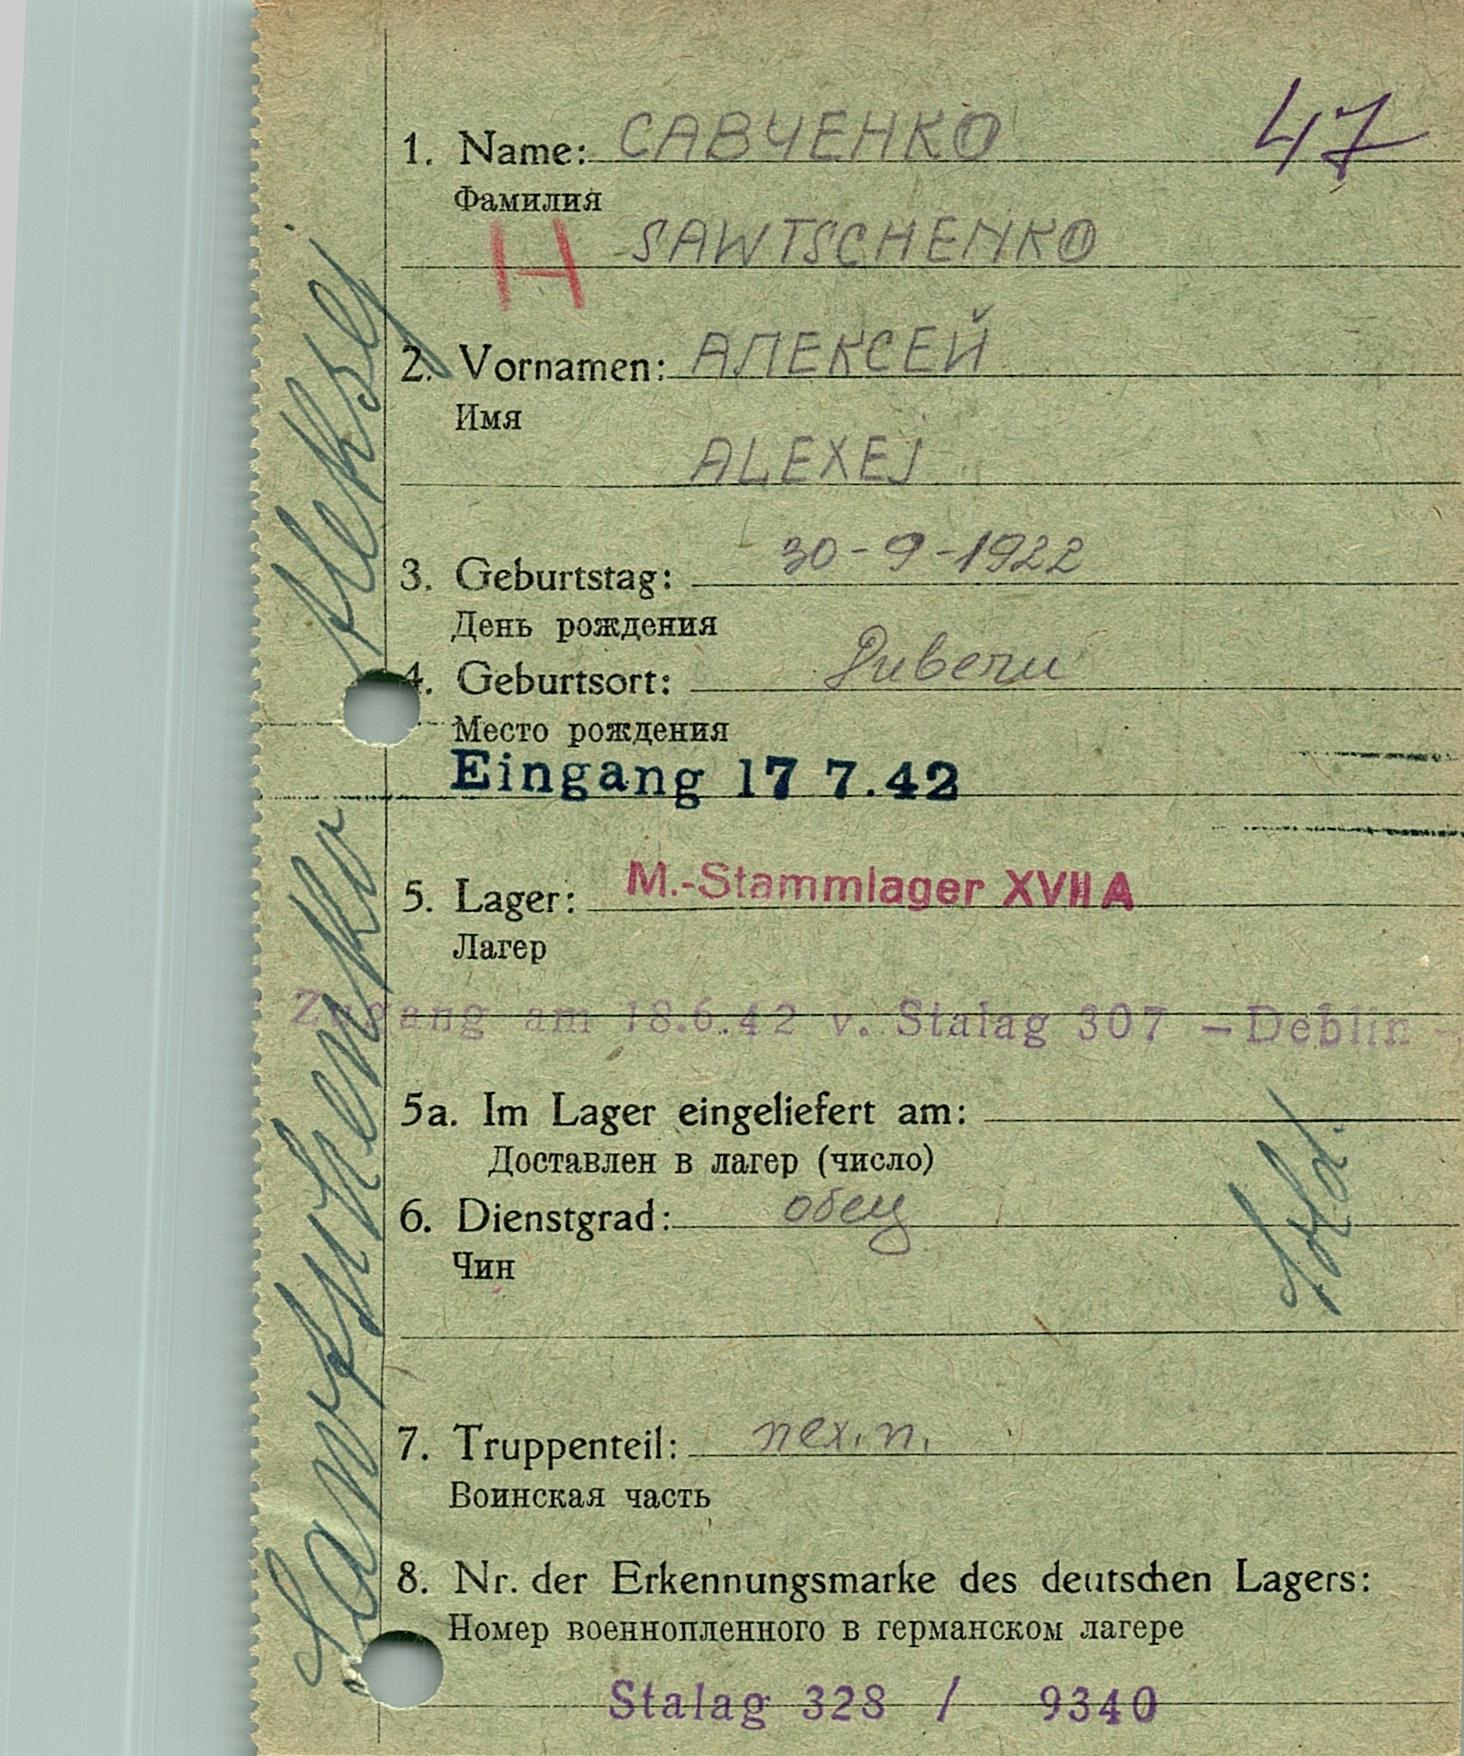 47
1. Name: САВЧЕНКО
Фамилия
H SAWTSCHENKO
2. Vornamen: АЛЕКСЕЙ
Имя
ALEXEJ
3. Geburtstag: 30-9-1922
День рождения
4. Geburtsort:
Место рождения
Eingang 17 7.42
5. Lager: M.-Stammlager XVII A
Лагерь
Zugang am 18.6.42 v. Stalag 307 - Deblin -
5a. Im Lager eingeliefert am:
Доставлен в лагер (число)
6. Dienstgrad:
Чин
Sold.
7. Truppenteil: пех. п.
Воинская часть
8. Nr. der Erkennungsmarke des deutschen Lagers:
Номер военнопленного в германском лагере
Stalag 328 / 9340
Sawtschenko Aleksej